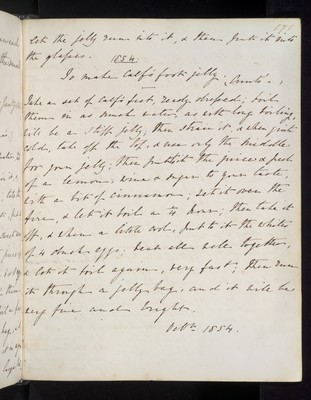 Let the jelly run into it, & then put it into
the glasses.
1854.
To make Calf's foot jelly.
Take a set of Calf's feet, ready dressed, boil
them in as much water, as with long boiling,
will be a stiff jelly, then strain it, & when quite
cold, take off the top, & use only the middle
for your jelly; then put to it the juice & peel
of a lemon, wine & sugar to your taste,
with a bit of cinnamon; set it over the
fire, & let it boil an hour; then take it
off, & when a little cool, put to it the whites
of 4 eggs; beat all well together,
& let it boil again, very fast; then run
it through a jelly bag, and it will be
very fine and bright.
1854.